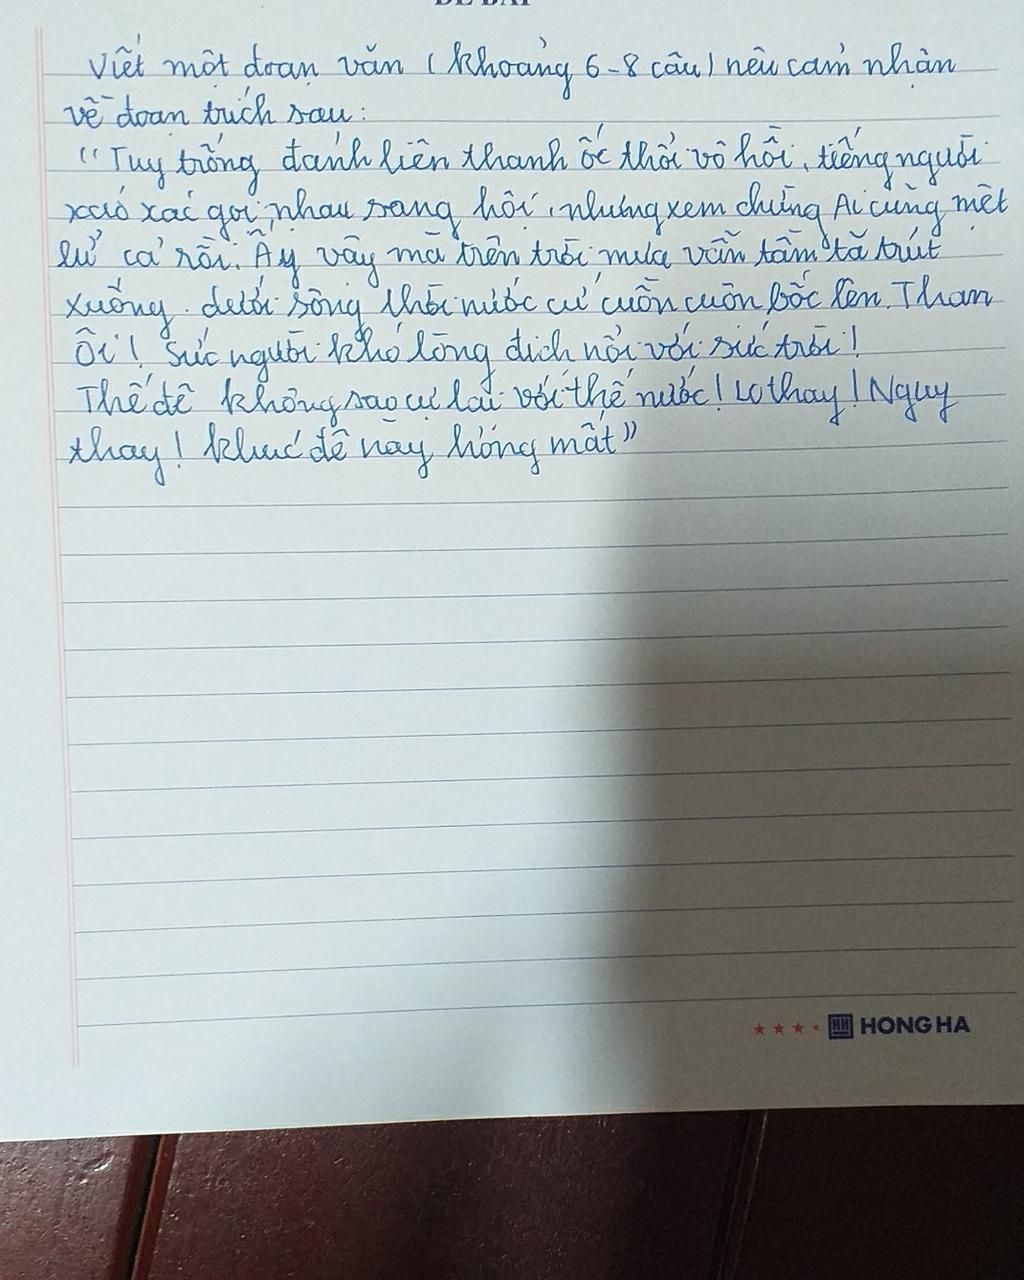 ĐỀ BÀI
Viết một đoạn văn (khoảng 6-8 câu) nêu cảm nhận
về đoạn trích sau:
"Tuy trống đánh liên thanh ốc thổi vô hồi, tiếng người
xao xác gọi nhau sang hội, nhưng xem chừng Ai cũng mệt
lử cả rồi. Ấy vậy mà trên trời mưa vẫn tầm tã trút
xuống. dưới sông thời nước cứ cuồn cuộn bốc lên. Than
Ôi! Sức người khó lòng địch nổi với sức trời!
Thế đê không sao cự lại với thế nước! Lo thay! Nguy
thay! khúc đê này hỏng mất"
HONG HA